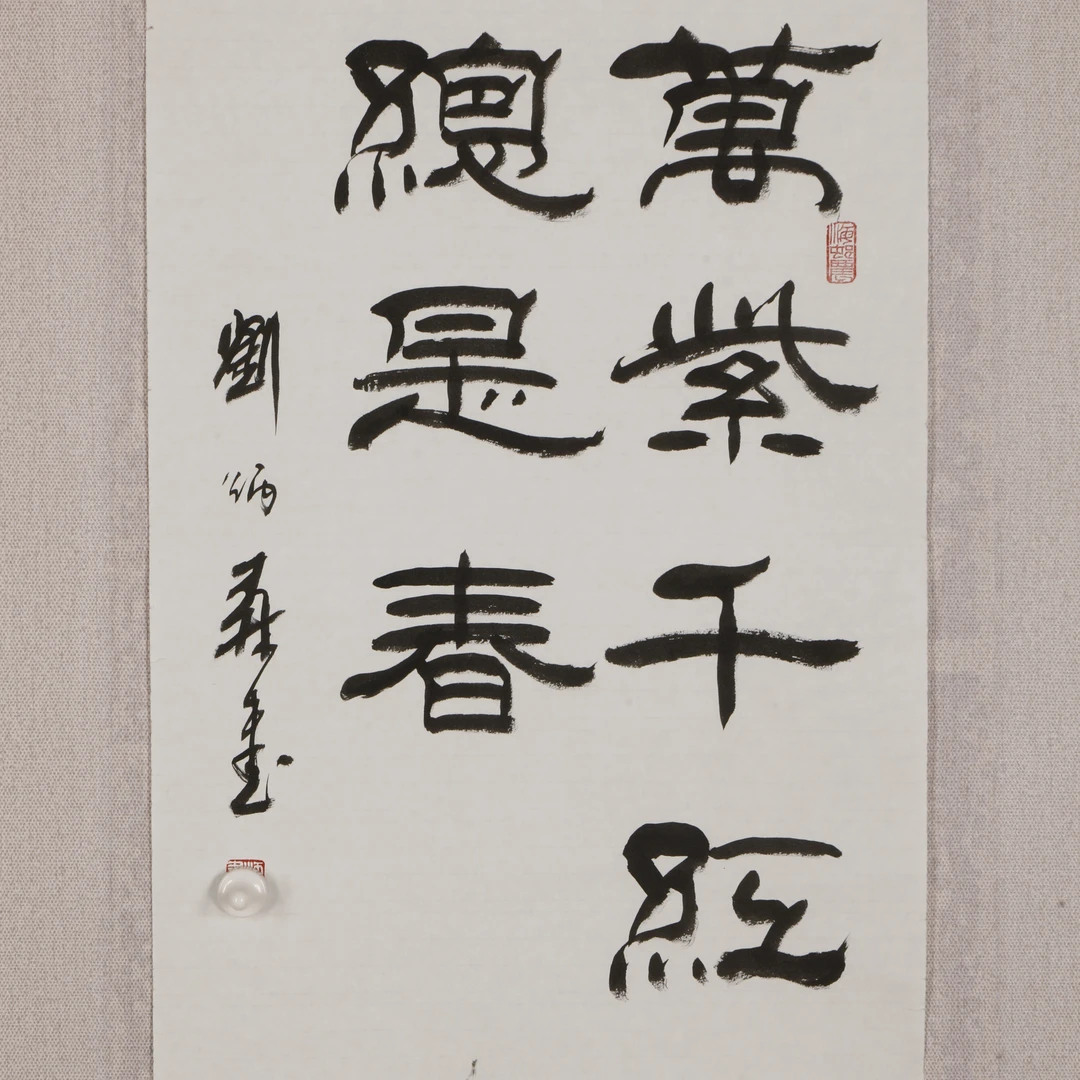 萬紫千紅
總是春
劉炳森書